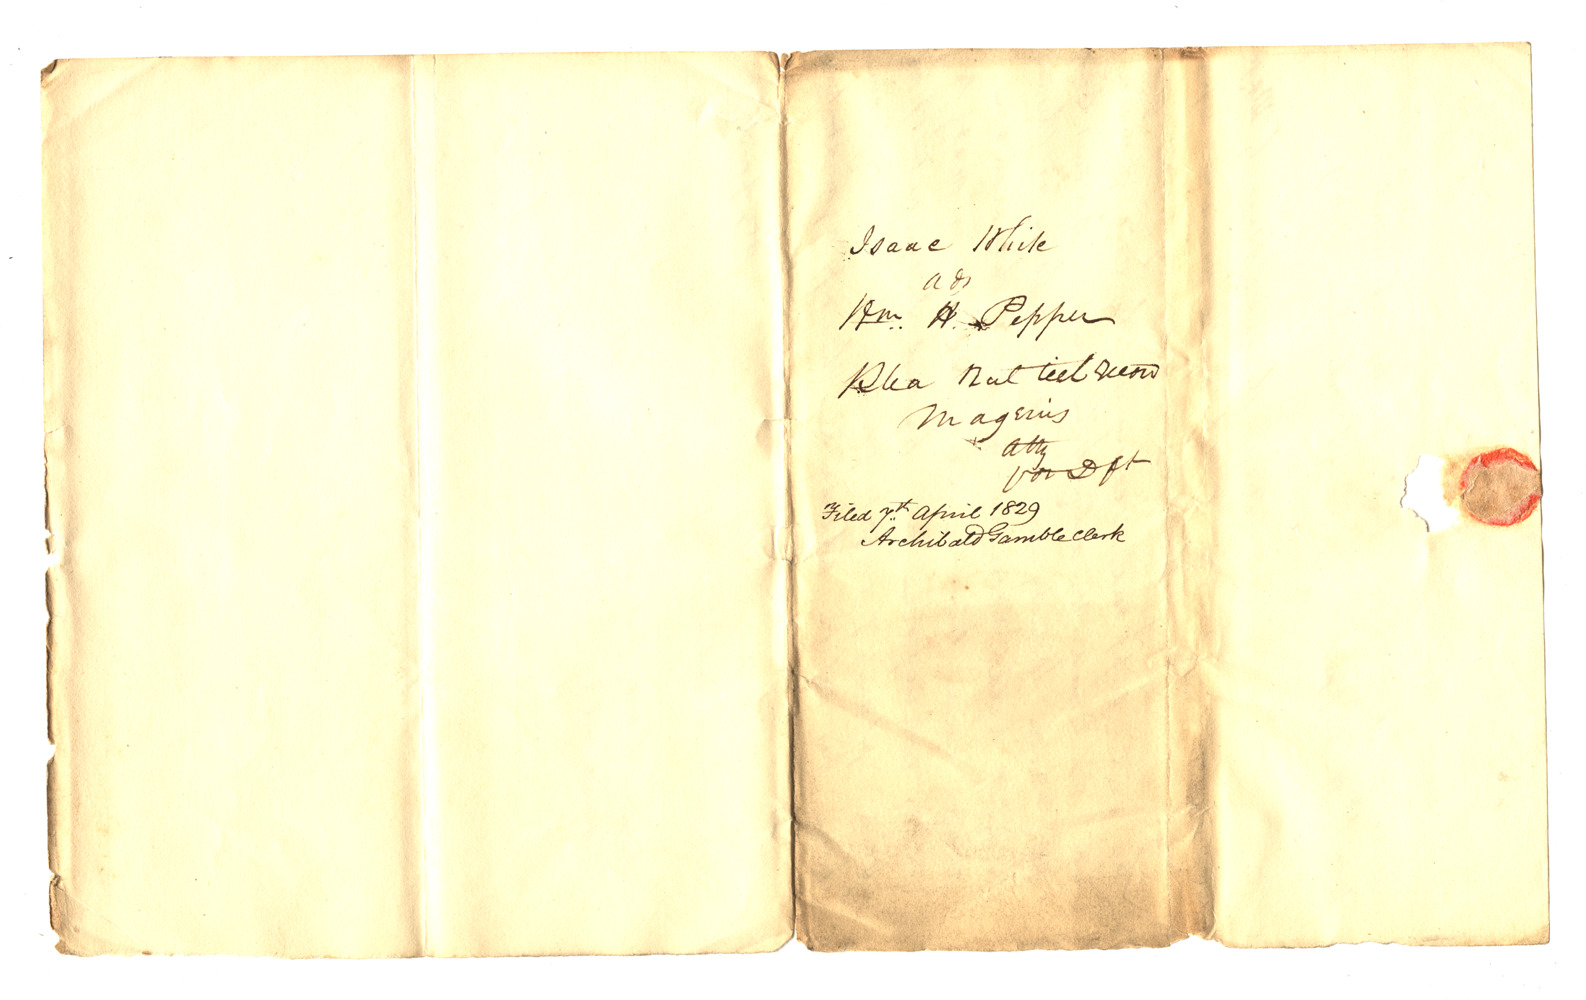 Isaac White
ads
Wm. H. Pepper
Plea Nul tiel recor
Magenis
Atty
for Dft
Filed 7th April 1829
Archibald Gamble Clerk